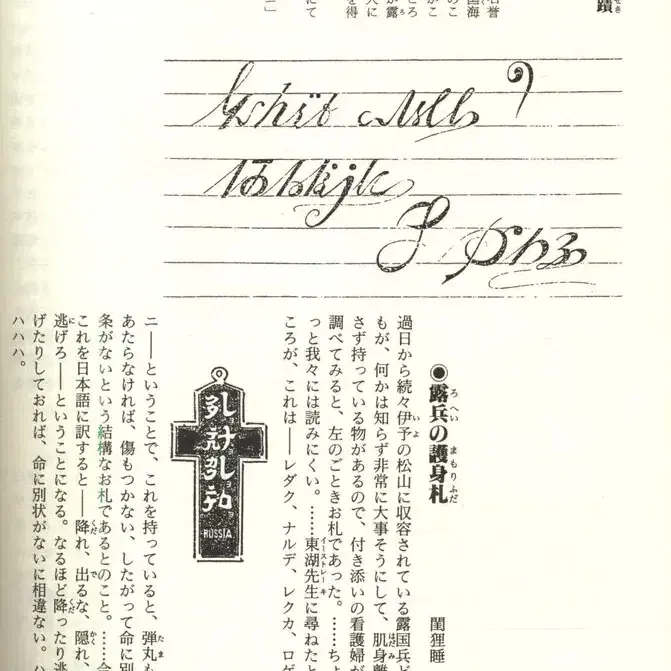 蹟
名誉
国海
のこ
がこ
ころ
が露
人に
を得
にて
●露兵の護身札 閨狸睡
過日から続々伊予の松山に収容されている露国兵ど
もが、何かは知らず非常に大事そうにして、肌身離
さず持っている物があるので、付き添いの看護婦が
調べてみると、左のごときお札であった。……ちょ
っと我々には読みにくい。……東湖先生に尋ねたと
ころが、これは――レダク、ナルデ、レクカ、ロゲ
RUSSIA
ニ――ということで、これを持っていると、弾丸も
あたらなければ、傷もつかない、したがって命に別
条がないという結構なお札であるとのこと。……今
これを日本語に訳すると――降れ、出るな、隠れ、
逃げろ――ということになる。なるほど降ったり逃
げたりしておれば、命に別状がないに相違ない。ハ
ハハハ。